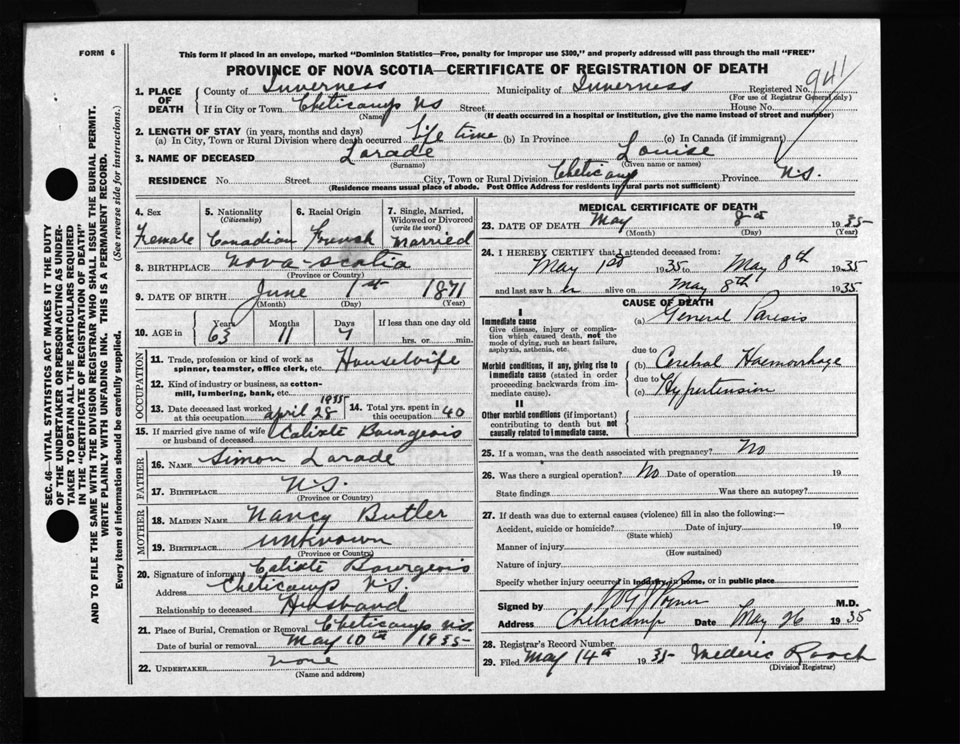 FORM 6
This form if placed in an envelope, marked "Dominion Statistics—Free, penalty for improper use $300," and properly addressed will pass through the mail "FREE"
PROVINCE OF NOVA SCOTIA—CERTIFICATE OF REGISTRATION OF DEATH
1. PLACE OF DEATH
County of Inverness Municipality of Inverness Registered No. 941
(For use of Registrar General only)
If in City or Town Cheticamp NS Street House No.
(Name) (If death occurred in a hospital or institution, give the name instead of street and number)
2. LENGTH OF STAY (in years, months and days)
(a) In City, Town or Rural Division where death occurred Life time (b) In Province (c) In Canada (if immigrant)
3. NAME OF DECEASED Larade Louise
(Surname) (Given name or names)
RESIDENCE No. Street City, Town or Rural Division Cheticamp Province N.S.
(Residence means usual place of abode. Post Office Address for residents in rural parts not sufficient)
SEC. 46—VITAL STATISTICS ACT MAKES IT THE DUTY
OF THE UNDERTAKER OR PERSON ACTING AS UNDER-
TAKER TO OBTAIN ALL THE PARTICULARS REQUIRED
IN THE "CERTIFICATE OF REGISTRATION OF DEATH"
AND TO FILE THE SAME WITH THE DIVISION REGISTRAR WHO SHALL ISSUE THE BURIAL PERMIT.
WRITE PLAINLY WITH UNFADING INK. THIS IS A PERMANENT RECORD.
Every item of information should be carefully supplied. (See reverse side for instructions.)
4. Sex
Female
5. Nationality
(Citizenship)
Canadian
6. Racial Origin
French
7. Single, Married,
Widowed or Divorced
(write the word)
Married
8. BIRTHPLACE Nova-Scotia
(Province or Country)
9. DATE OF BIRTH June 1st 1871
(Month) (Day) (Year)
10. AGE in Years Months Days If less than one day old
63 11 7 hrs. or min.
OCCUPATION
11. Trade, profession or kind of work as Housewife
spinner, teamster, office clerk, etc.
12. Kind of industry or business, as cotton-
mill, lumbering, bank, etc.
1935
13. Date deceased last worked at this occupation April 28
14. Total yrs. spent in this occupation 40
15. If married give name of wife or husband of deceased Calixte Bourgeois
FATHER
16. NAME Simon Larade
17. BIRTHPLACE N.S.
(Province or Country)
MOTHER
18. MAIDEN NAME Nancy Butler
19. BIRTHPLACE unknown
(Province or Country)
20. Signature of informant Calixte Bourgeois
Address Cheticamp N.S.
Relationship to deceased Husband
21. Place of Burial, Cremation or Removal Cheticamp N.S.
Date of burial or removal May 10th 1935
22. UNDERTAKER none
(Name and address)
MEDICAL CERTIFICATE OF DEATH
23. DATE OF DEATH May 8th 1935
(Month) (Day) (Year)
24. I HEREBY CERTIFY that I attended deceased from:
May 1st 1935 to May 8th 1935
and last saw h er alive on May 8th 1935
CAUSE OF DEATH
I
Immediate cause (a) General Paresis
Give disease, injury or complica-
tion which caused death, not the
mode of dying, such as heart failure,
asphyxia, asthenia, etc.
due to
Morbid conditions, if any, giving rise to (b) Cerebral Haemorrhage
immediate cause (stated in order due to
proceeding backwards from im- (c) Hypertension
mediate cause).
II
Other morbid conditions (if important)
contributing to death but not
causally related to immediate cause.
25. If a woman, was the death associated with pregnancy? No
26. Was there a surgical operation? No Date of operation 19
State findings Was there an autopsy?
27. If death was due to external causes (violence) fill in also the following:—
Accident, suicide or homicide? Date of injury 19
(State which)
Manner of injury
(How sustained)
Nature of injury
Specify whether injury occurred in industry, in home, or in public place
Signed by M.D.
Address Cheticamp Date May 26 1935
28. Registrar's Record Number
29. Filed May 14th 1935 Mederic Roach
(Division Registrar)